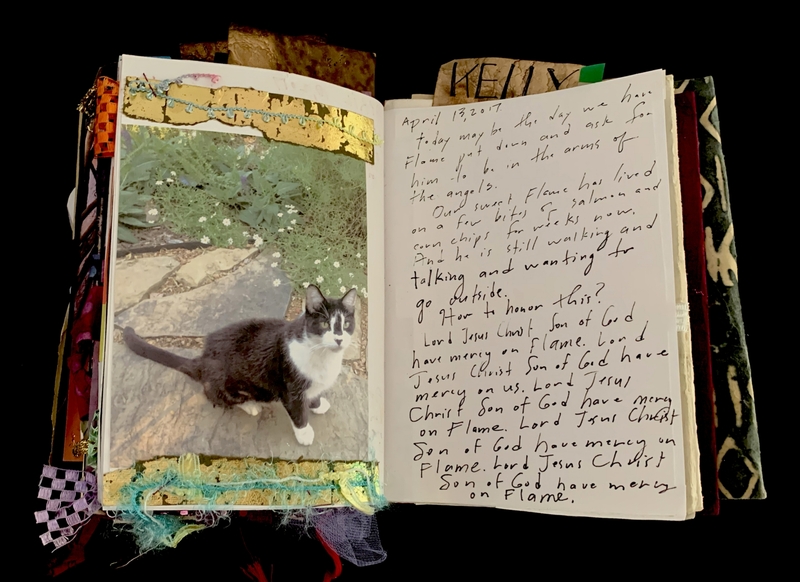 KELLY
April 13, 2017
Today may be the day we have
Flame put down and ask for
him to be in the arms of
the angels.
Our sweet Flame has lived
on a few bites of salmon and
corn chips for weeks now.
And he is still walking and
talking and wanting to
go outside.
How to honor this?
Lord Jesus Christ Son of God
have mercy on Flame. Lord
Jesus Christ Son of God have
mercy on us. Lord Jesus
Christ Son of God have mercy
on Flame. Lord Jesus Christ
Son of God have mercy on
Flame. Lord Jesus Christ
Son of God have mercy
on Flame.